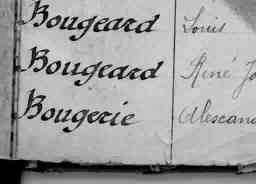 Bougeard Louis
Bougeard René Jo
Bougerie Alexand